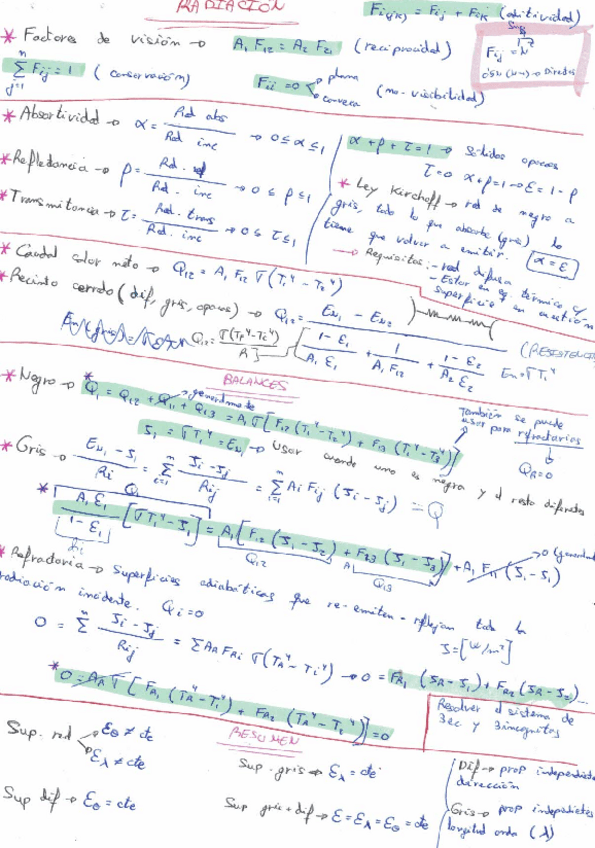 RADIACIÓN
Fi(j,k) = Fij + Fik (aditividad)
* Factores de visión → A₁ F₁₂ = A₂ F₂₁ (reciprocidad)
Fij = N
Directos
Σ(j=1, n) Fij = 1 (conservación)
Fii = 0 → plana
→ convexa
(no-visibilidad)
* Absortividad → α = Rad abs / Rad inc → 0 ≤ α ≤ 1
α + ρ + τ = 1 → Sólidos opacos
τ = 0 α + ρ = 1 → ε = 1 - ρ
* Reflectancia → ρ = Rad. ref / Rad. inc → 0 ≤ ρ ≤ 1
* Ley Kirchoff → rad de negro a
gris, todo lo que absorbe (gris) lo
tiene que volver a emitir. α = ε
* Transmitancia → τ = Rad. trans / Rad. inc → 0 ≤ τ ≤ 1
→ Requisitos: - rad difusa
- Estar en eq. térmico
superficie y en cuestión
* Caudal calor neto → Q₁₂ = A₁ F₁₂ σ (T₁⁴ - T₂⁴)
* Recinto cerrado (dif, gris, opaco) → Q₁₂ = (En₁ - En₂) / ((1 - ε₁)/(A₁ ε₁) + 1/(A₁ F₁₂) + (1 - ε₂)/(A₂ ε₂))
En = σT₁⁴
BALANCES
* Negro → * Q₁ = Q₁₂ + Q₁₁ + Q₁₃ = A₁ σ [F₁₂ (T₁⁴ - T₂⁴) + F₁₃ (T₁⁴ - T₃⁴)]
generalmente
También se puede
usar para refractarios
Q_R = 0
J₁ = σT₁⁴ = En₁ → Usar cuando uno es negro y el resto diferentes
* Gris → (En₁ - J₁)/Ri = Σ (Ji - Jj)/Rij = Σ Ai Fij (Ji - Jj) = Q
* Q₁
A₁ ε₁ / (1 - ε₁) [σT₁⁴ - J₁] = A₁ [F₁₂ (J₁ - J₂) + F₁₃ (J₁ - J₃)] + A₁ F₁₁ (J₁ - J₁)
Q₁₂ Q₁₃
* Refractaria → Superficies adiabáticas que re-emiten - reflejan toda la
radiación incidente. Qi = 0
J = [W/m²]
0 = Σ (Ji - Jj)/Rij = Σ A_R F_Ri σ (T_R⁴ - Ti⁴) → 0 = F_R1 (J_R - J₁) + F_R2 (J_R - J₂) ...
* 0 = A_R σ [F_R1 (T_R⁴ - T₁⁴) + F_R2 (T_R⁴ - T₂⁴)] = 0
Resolver el sistema de
3 ec y 3 incognitas
RESUMEN
Sup. real → εθ ≠ cte
→ ελ ≠ cte
Sup. gris → ελ = cte
Dif → prop independiente
dirección
Sup dif → εθ = cte
Sup gris + dif → ε = ελ = εθ = cte
Gris → prop independientes
longitud onda (λ)